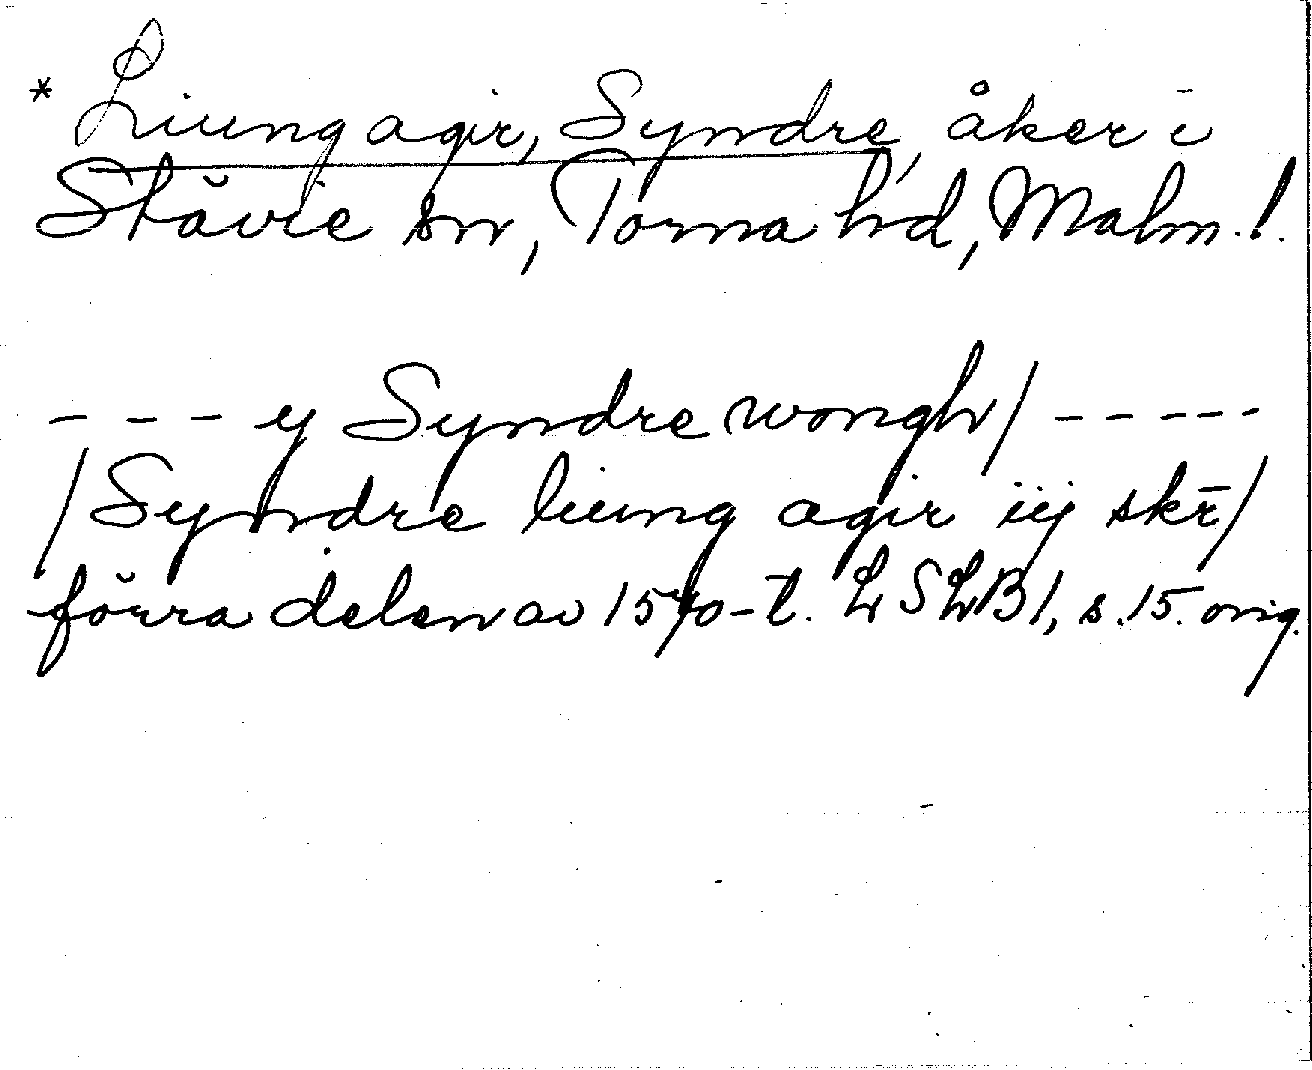 * Liung agir, Syndre, åker i
Stävie sn, Torna hd, Malm. l.
- - - ij Syndre wongh/ - - - - -
/Syndre liung agir iij skr̄/
förra delen av 1570-t. LSLB 1, s. 15. orig.